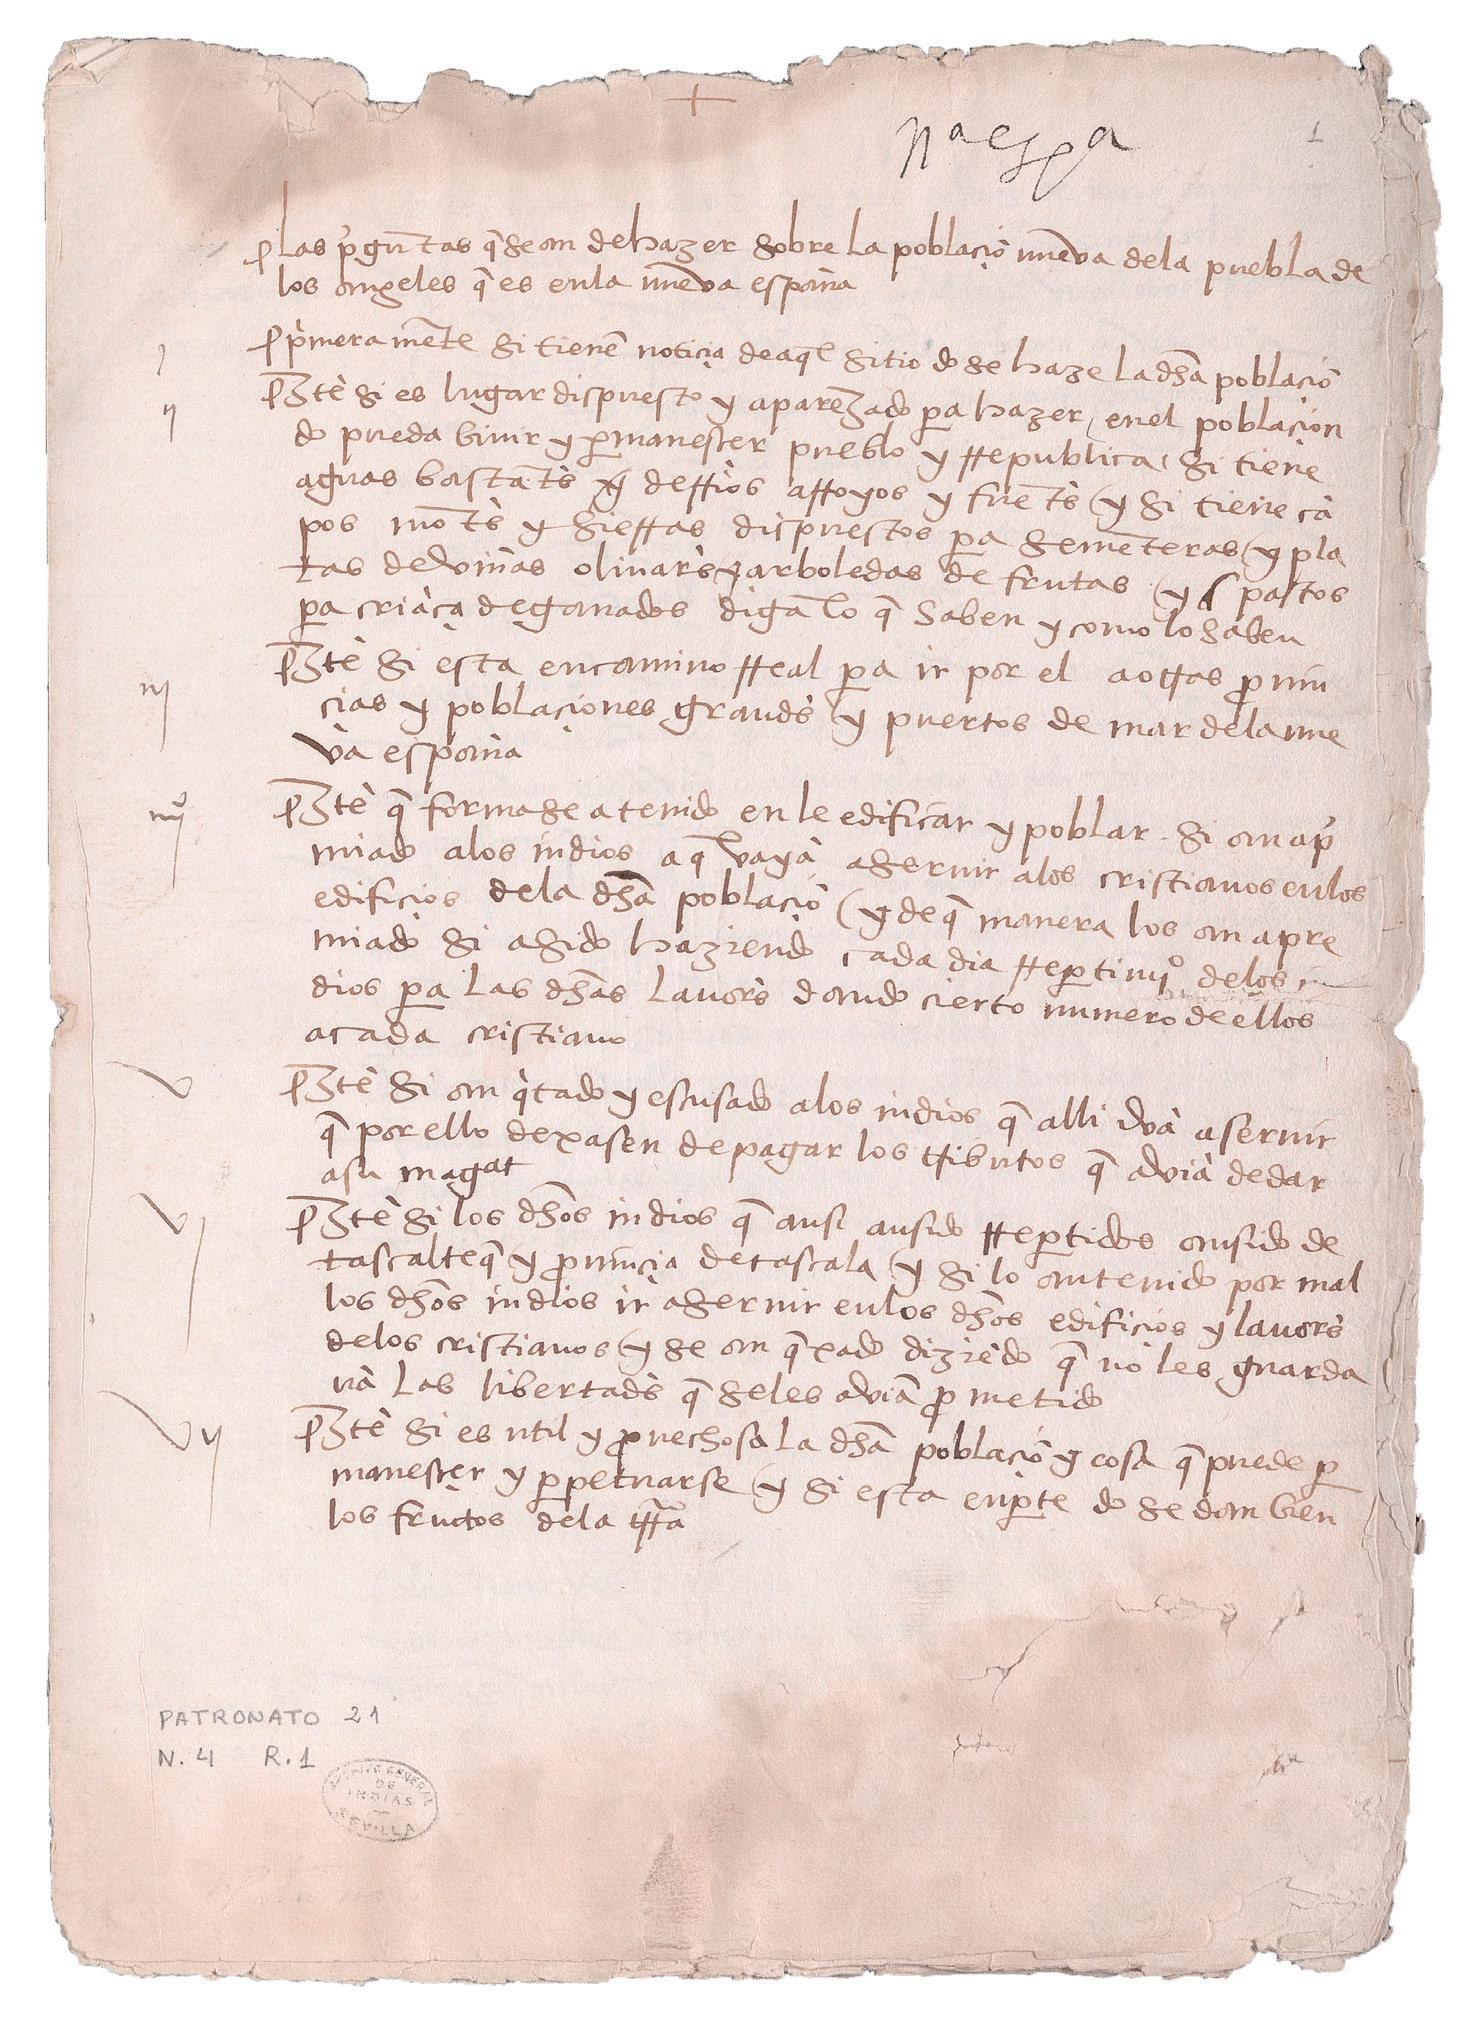 +
nª espª
1
las pͬgūtas q̄ se an de hazer sobre la poblaciō nueva de la puebla de
los angeles q̄ es en la nueva españa
j
pͥmera mēte si tienē noticia de aql̄ sitio do se haze la dh̄a poblaciō
ij
Ytē si es lugar dispuesto y aparejado pa hazer en el poblacion
do pueda bivir y pmanesçer pueblo y rrepublica si tiene
aguas bastātēs y de rrios arroyos y fuētēs y si tiene cā
pos mōtēs y sierras dispuestos pa semēteras y plā
tas de viñas olivarēs y arboledas de frutas y pastos
pa criāça de ganados digā lo q̄ saben y como lo saben
iij
Ytē si esta en camino rreal pa ir por el a otras provin
cias y poblaciones grandēs y puertos de mar de la nue
va españa
iiijº
Ytē q̄ forma se a tenido en le edificar y poblar . si an apͬ
miado a los indios a q̄ vayā a servir a los cristianos en los
edificios de la dh̄a poblaciō y de q̄ manera los an apre
miado si a sido haziendo cada dia rrepartimjº de los in
dios pa las dh̄as lavorēs dando cierto numero de ellos
a cada cristiano
v
Ytē si an qͥtado y escusado a los indios q̄ alli ivā a servir
q̄ por ello dexasen de pagar los tributos q̄ aviā de dar
a su magat
vj
Ytē si los dh̄os indios q̄ ansi an sido rrepartidos an sido de
tascalteq̄ y provinçia de tascala y si lo an tenido por mal
los dh̄os indios ir a servir en los dh̄os edificios y lavorēs
de los cristianos y se an q̄xado diziēdo q̄ no les guarda
vā las libertadēs q̄ se les aviā prometido
vij
Ytē si es util y provechosa la dh̄a poblaciō y cosa q̄ puede p
manesçer y ppetuarse y si esta en pte do se dan bien
los fructos de la trrª
PATRONATO 21
N. 4 R. 1
ARCHIVO GENERAL
DE
INDIAS
SEVILLA